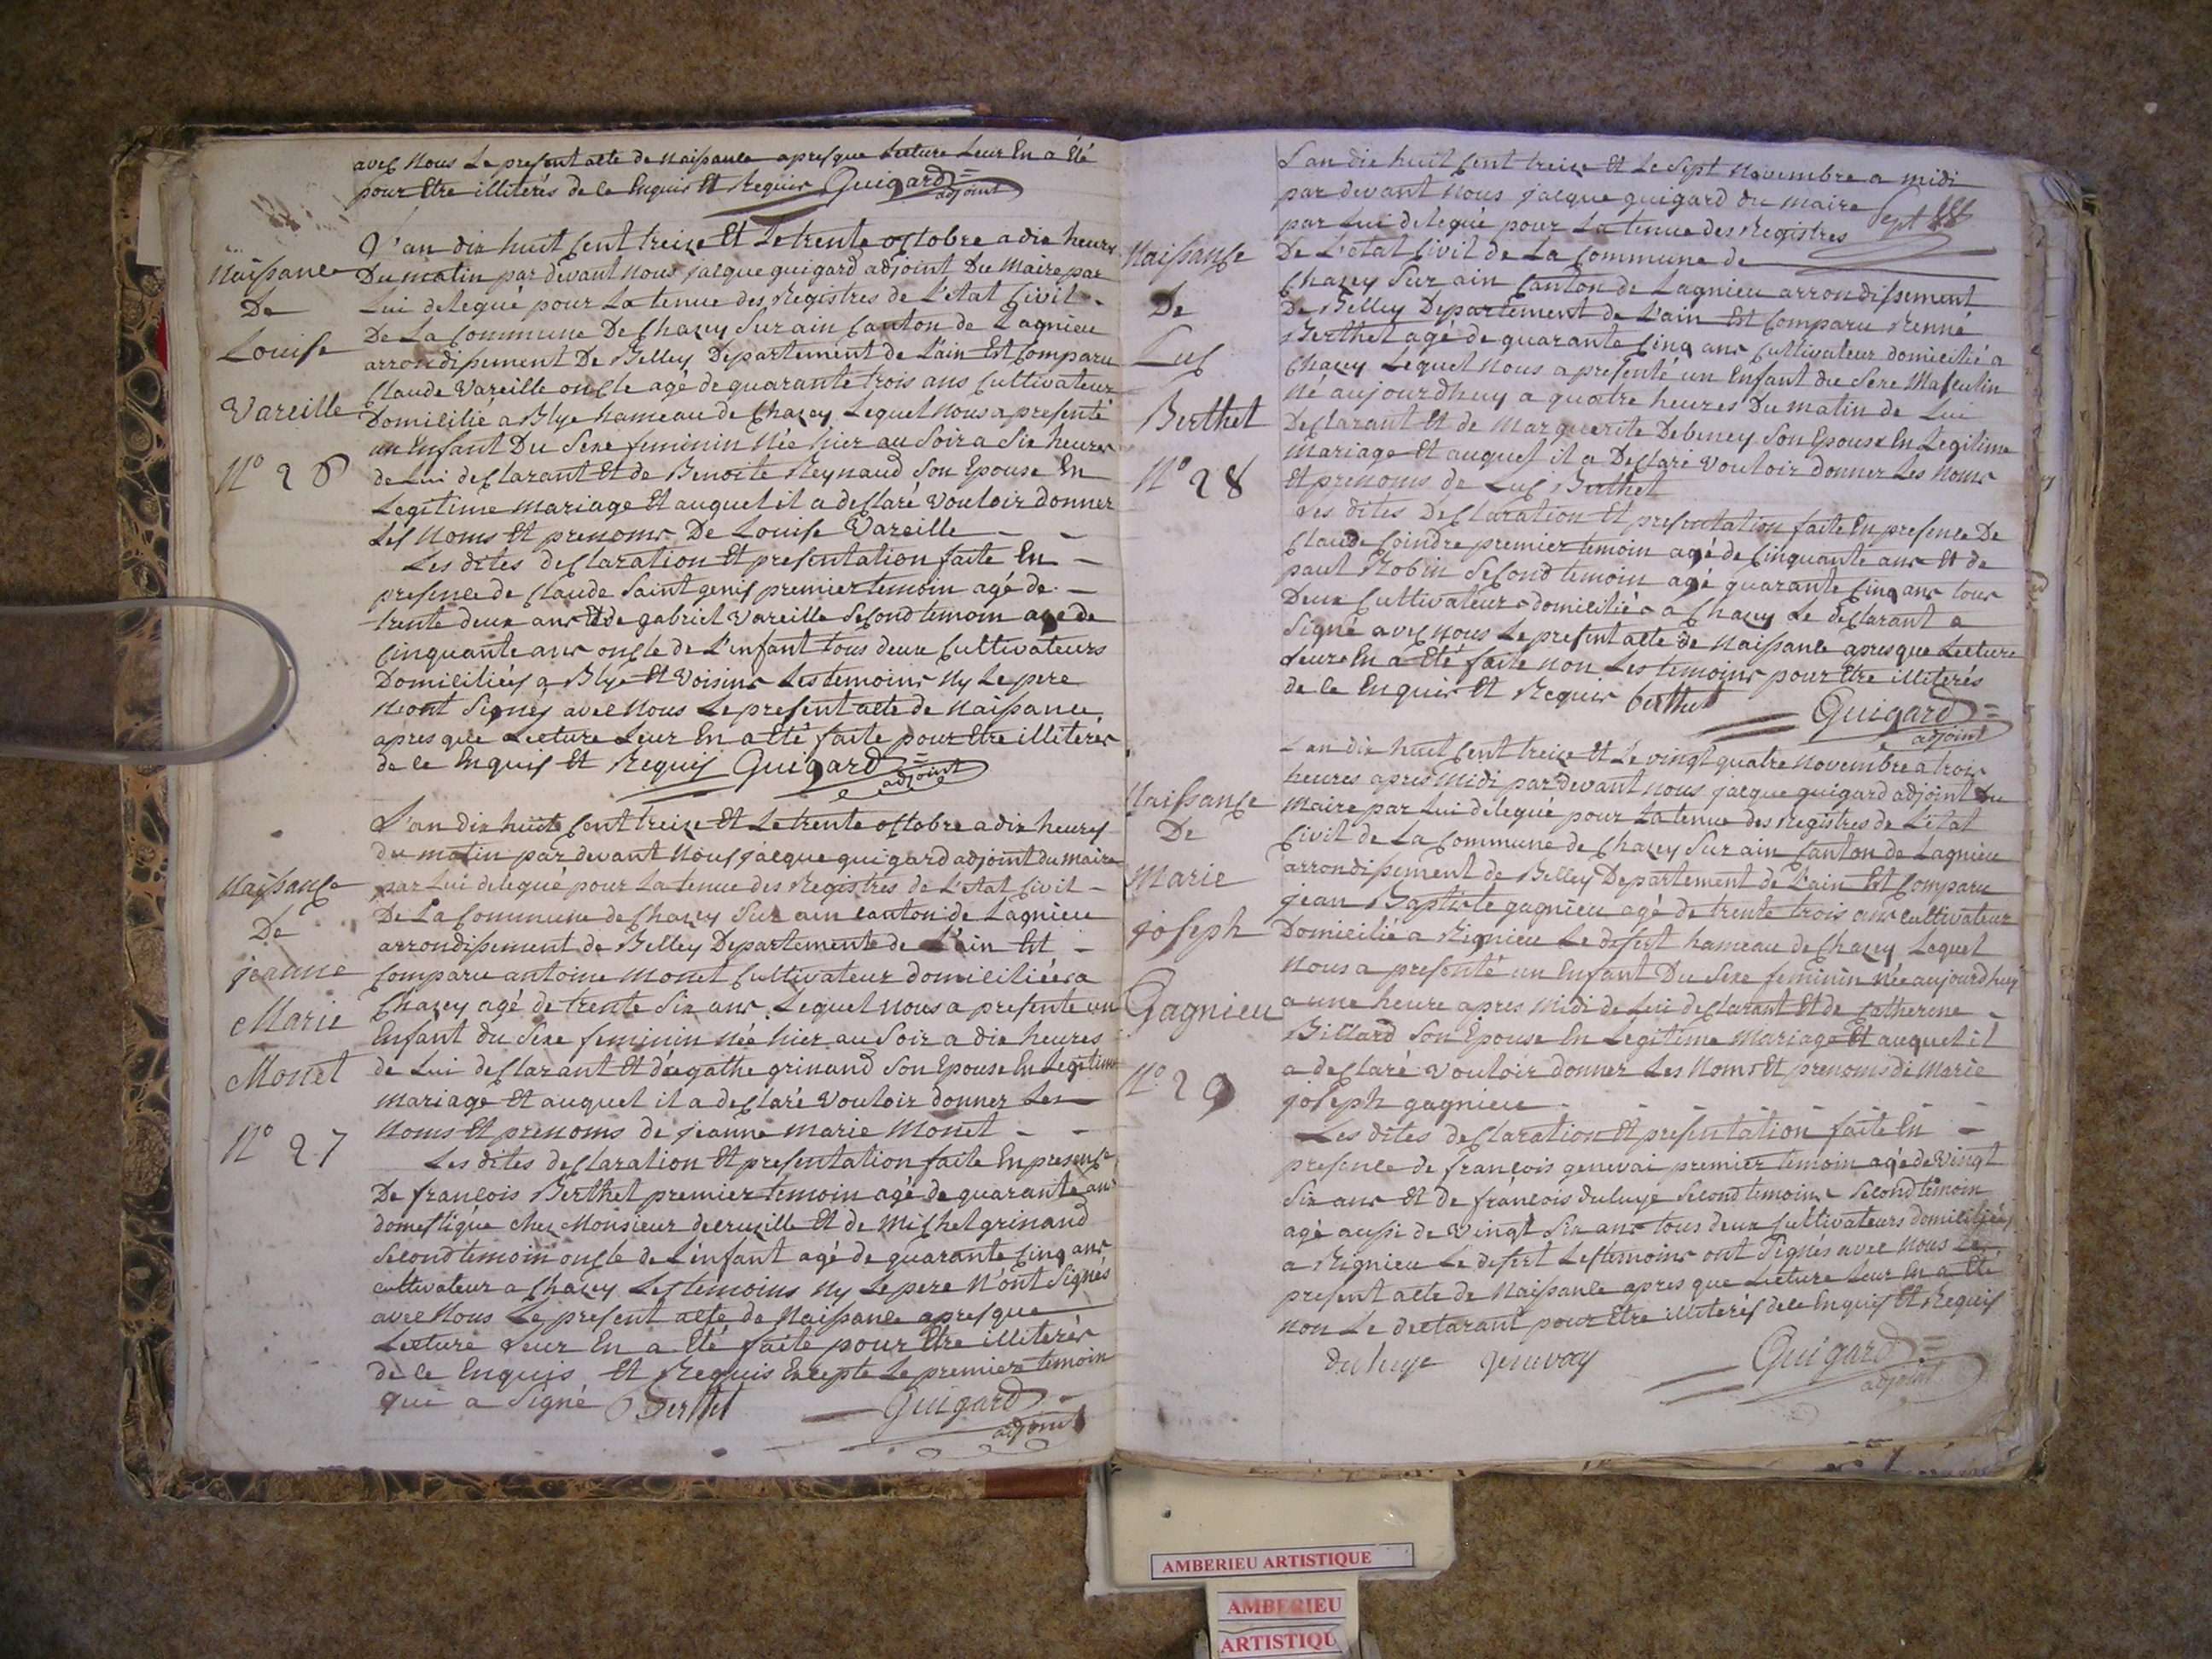 avec nous Le present acte de naissance apres que Lecture Leur En a Eté
pour Etre illiterés de ce Enquis Et Requis Guigard
adjoint
Naissance
De
Louise
Vareille
N° 26
L'an dix huit Cent treize Et Le trente octobre a dix heures
Du matin par devant nous jacque guigard adjoint Du Maire par
Lui delegué pour La tenue des Registres de L'Etat Civil
De La Commune De Chazey Sur ain Canton de Lagnieu
arrondissement De Belley Departement de L'ain Est Comparu
Claude Vareille oncle agé de quarante trois ans Cultivateur
Domicilié a Blye hameau de Chazey Lequel nous a presenté
un Enfant Du Sexe feminin Née hier au Soir a Six heures
de Lui declarant Et de Benoite Reynaud Son Epouse En
Legitime mariage Et auquel il a declaré Vouloir donner
Les Noms Et prenoms De Louise Vareille
Les dites declaration Et presentation faite En
presence de Claude Saint genis premier temoin agé de
trente deux ans Et de gabriel Vareille Second temoin agé de
Cinquante ans oncle de L'enfant tous deux Cultivateurs
Domiciliés a Blye Et Voisins Les temoins Ny Le pere
N'ont Signés avec Nous Le present acte de Naissance
apres que Lecture Leur En a Eté faite pour Etre illiterés
de ce Enquis Et Requis Guigard
adjoint
Naissance
De
jeanne
Marie
Monet
N° 27
L'an dix huit Cent treize Et Le trente octobre a dix heures
du matin par devant Nous jacque guigard adjoint du maire
par Lui delegué pour La tenue des Registres de L'Etat Civil
De La Commune de Chazey Sur ain canton de Lagnieu
arrondissement de Belley Departemente de L'ain Est
Comparu antoine Monet Cultivateur domicilié a
Chazey agé de trente Six ans Lequel nous a presente un
Enfant du Sexe feminin Née hier au Soir a dix heures
de Lui declarant Et d'agathe grinand Son Epouse En Legitime
mariage Et auquel il a declaré Vouloir donner Les
Noms Et prenoms de jeanne marie Monet
Les dites declaration Et presentation faite En presence
De françois Berthet premier temoin agé de quarante ans
domestique chez Monsieur Et de Michel grinand
Second temoin oncle de L'enfant agé de quarante Cinq ans
cultivateur a Chazey Les temoins Ny Le pere N'ont Signés
avec Nous Le present acte de Naissance apres que
Lecture Leur En a Eté faite pour Etre illiterés
de ce Enquis Et Requis Excepte Le premier temoin
qui a Signé Berthet Guigard
adjoint
Naissance
De
Luc
Berthet
N° 28
L'an dix huit Cent treize Et Le Sept Novembre a midi
par devant Nous jacque guigard du maire
par Lui delegué pour La tenue des Registres
De L'etat Civil de La Commune de
Chazey Sur ain Canton de Lagnieu arrondissement
De Belley Departement de L'ain Est Comparu Renné
Berthet agé de quarante Cinq ans Cultivateur domicilié a
Chazey Lequel Nous a presenté un Enfant du Sexe Masculin
Né aujourdhuy a quatre heures Du matin de Lui
Declarant Et de Marguerite Debeney Son Epouse En Legitime
Mariage Et auquel il a Declaré Vouloir donner Les Noms
Et prenoms de Luc Berthet
Les dites Declaration Et presentation faite En presence De
Claude Coindre premier temoin agé de Cinquante ans Et de
paul Robin Second temoin agé quarante Cinq ans tous
Deux Cultivateurs domiciliés a Chazey Le declarant a
Signé avec Nous Le present acte de Naissance apres que Lecture
Leurs En a Eté faite non Les temoins pour Etre illiterés
de ce Enquis Et Requis berthet
Guigard
adjoint
Naissance
De
Marie
joseph
Gagnieu
N° 29
L'an dix huit Cent treize Et Le vingt quatre Novembre a trois
heures apres midi par devant nous jacque guigard adjoint du
Maire par Lui delegué pour La tenue des Registres de L'Etat
Civil de La Commune de Chazey Sur ain Canton de Lagnieu
arrondissement de Belley Departement de L'ain Est Comparu
jean Baptiste gagnieu agé de trente trois ans cultivateur
Domicilié a Rignieu Le desert hameau de Chazey Lequel
Nous a presenté un Enfant Du Sexe feminin Née aujourdhuy
a une heure apres midi de Lui declarant Et de Catherene
Billard Son Epouse En Legitime Mariage Et auquel il
a declaré Vouloir donner Les Noms Et prenoms de Marie
joseph gagnieu
Les dites declaration Et presentation faite En
presence de françois genevai premier temoin agé de Vingt
Six ans Et de françois duluye Second temoins Second temoin
agé aussi de Vingt Six ans tous deux Cultivateurs domiciliés
a Rignieu Le desert Les temoins ont Signés avec nous Le
present acte de Naissance apres que Lecture Leur En a Eté
non Le declarant pour Etre illiterés de ce Enquis Et Requis
duluye genevay Guigard
adjoint
AMBERIEU ARTISTIQUE
AMBERIEU
ARTISTIQU